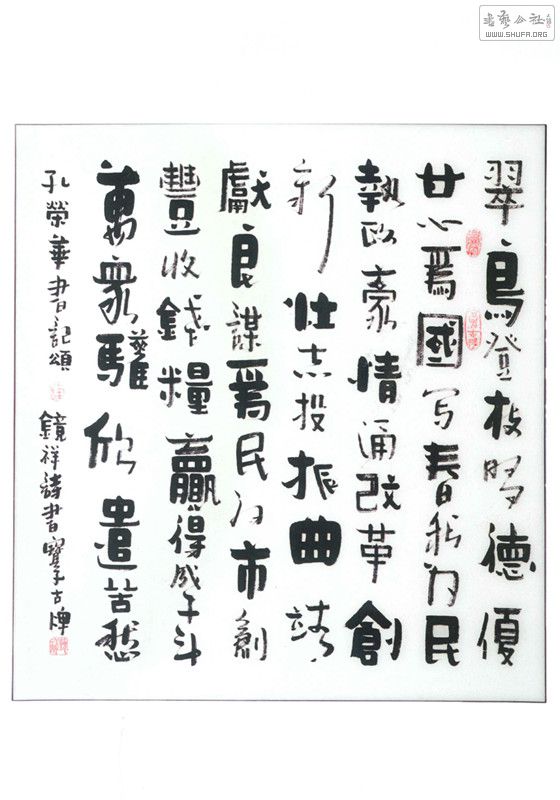 翠鳥登枝鸣德優
廿心爲國写春秋为民
執政豪情通改革創
新壮志投振曲靖
獻良謀爲民为市創
豐收錢糧贏得成千斗
萬衆騅欣遣苦愁
孔榮華書記頌
鏡祥詩書寶子古碑
書藝公社
WWW.SHUFA.ORG